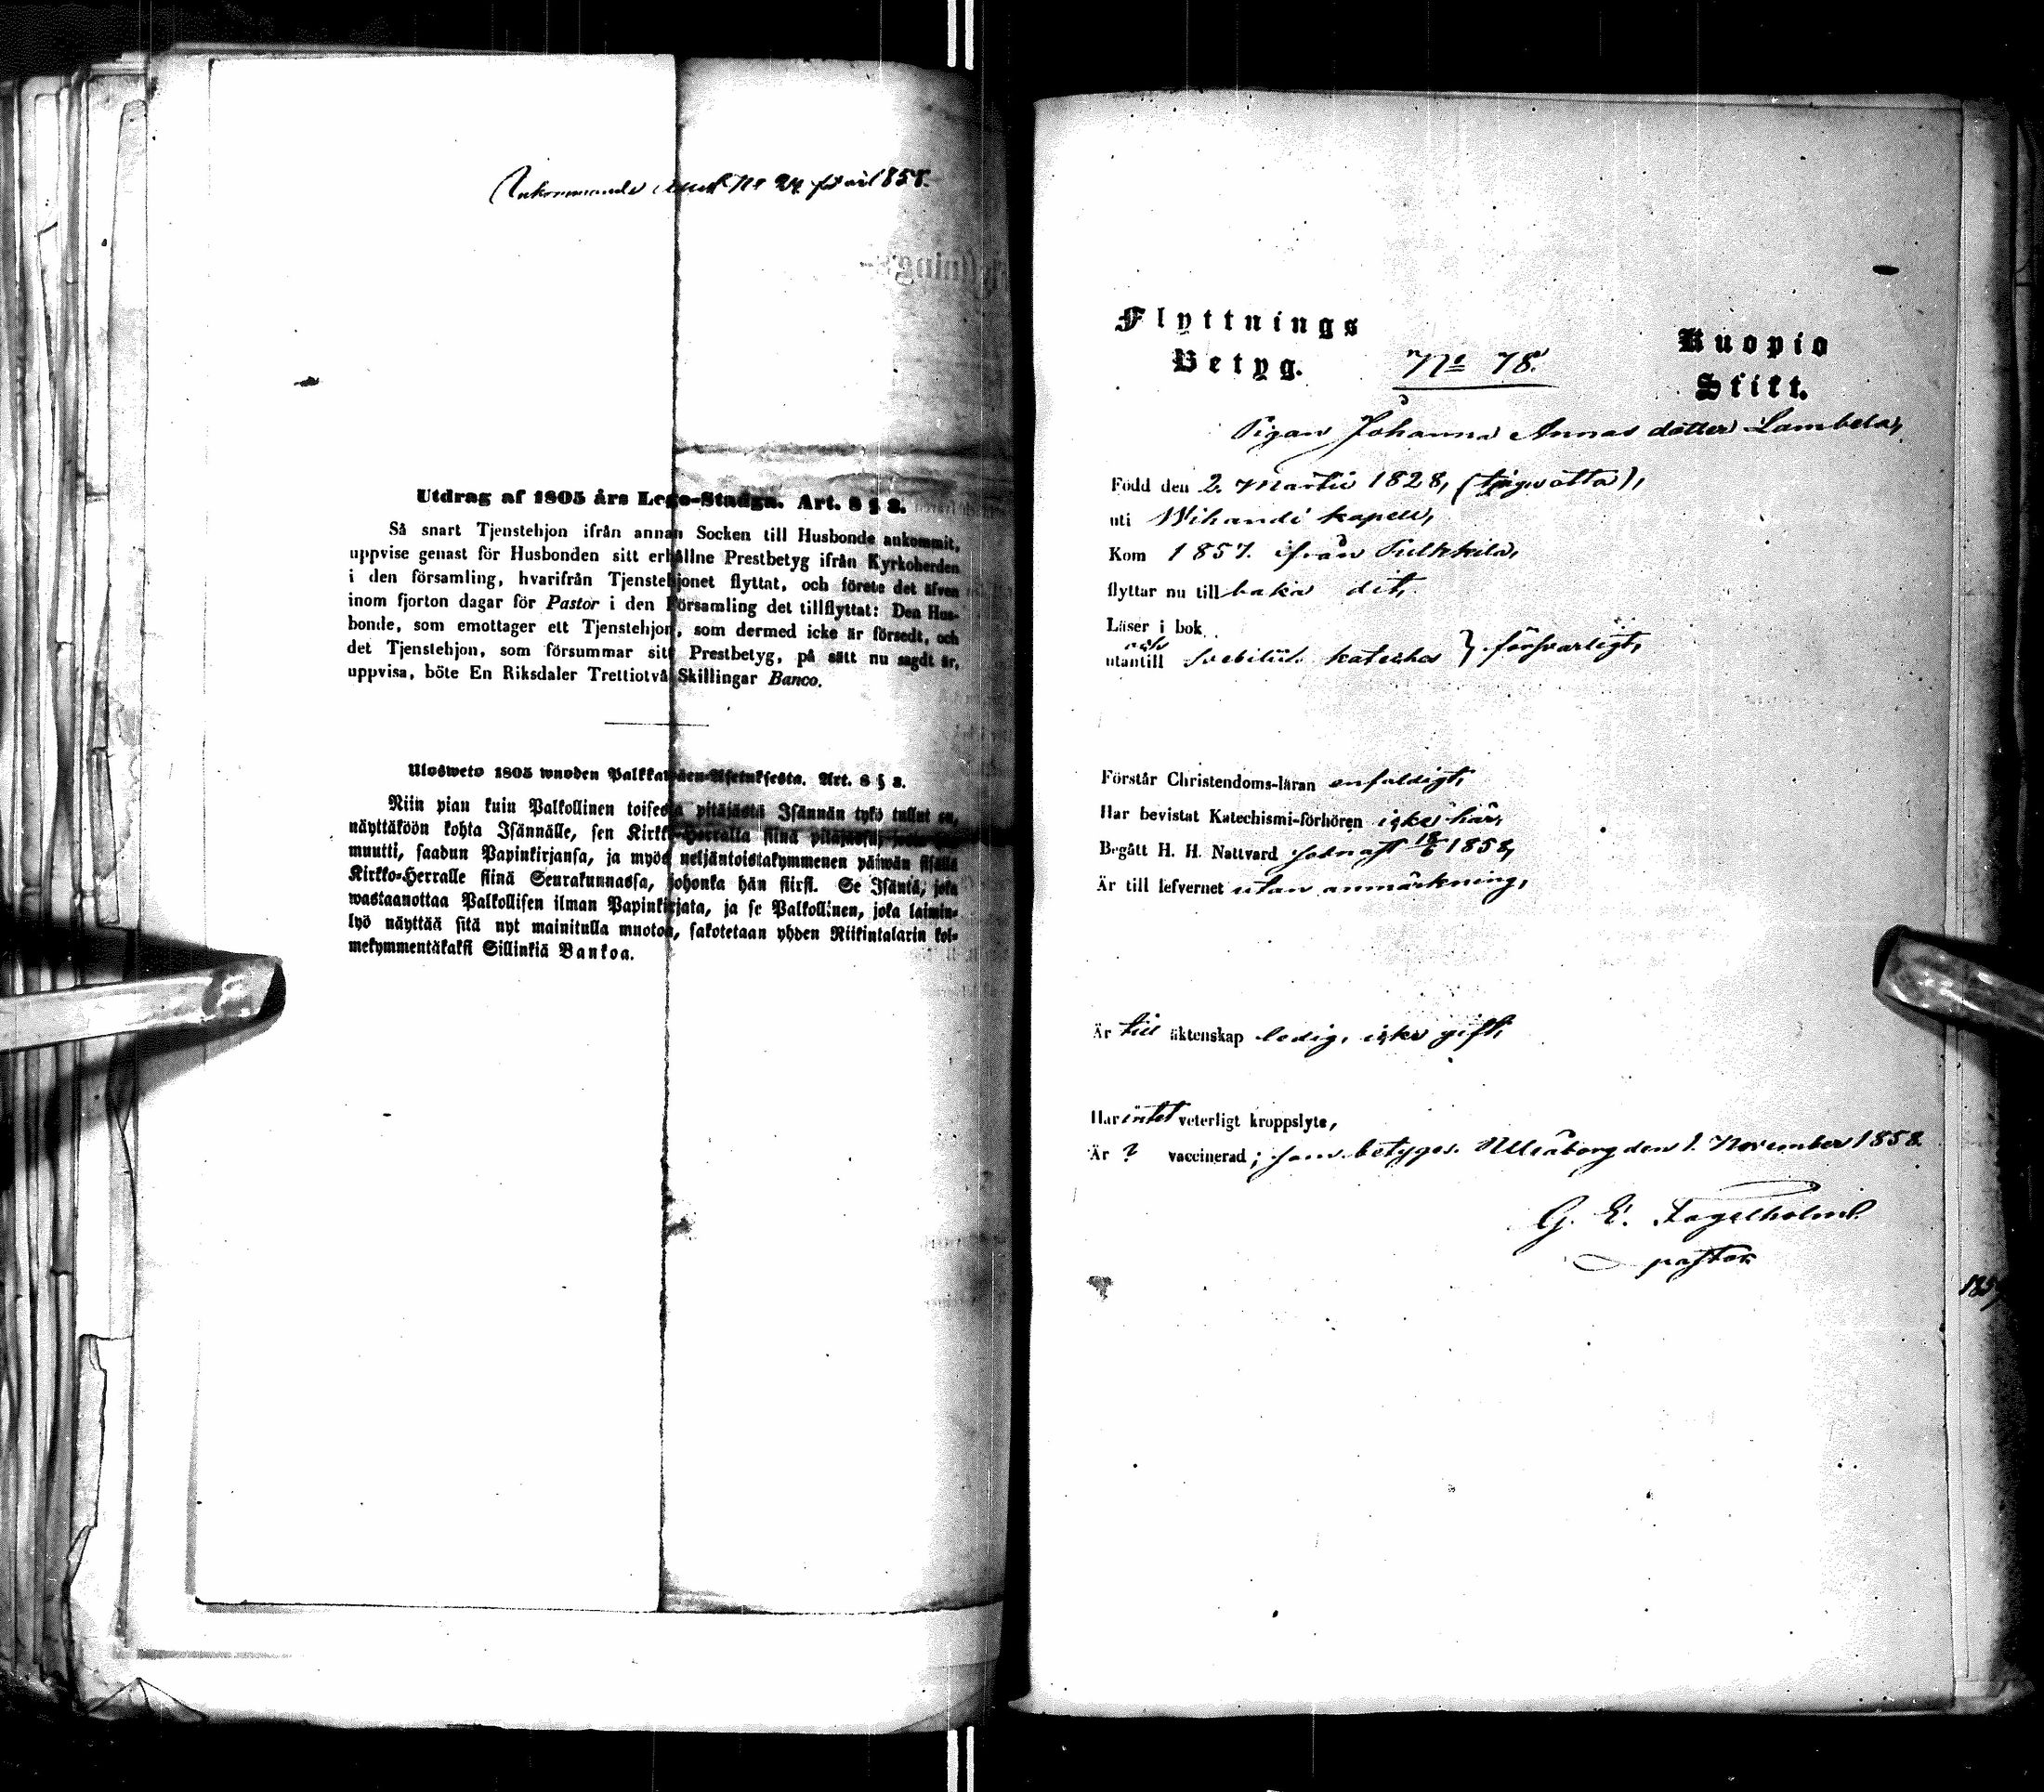 Inkommande № 24 för 1858.
Utdrag af 1805 års Lego-Stadga. Art. 8 § 3.
Så snart Tjenstehjon ifrån annan Socken till Husbonde ankommit,
uppvise genast för Husbonden sitt erhållne Prestbetyg ifrån Kyrkoherden
i den församling, hvarifrån Tjenstehjonet flyttat, och förete det äfven
inom fjorton dagar för Pastor i den Församling det tillflyttat: Den Hus-
bonde, som emottager ett Tjenstehjon, som dermed icke är försedt, och
det Tjenstehjon, som försummar sitt Prestbetyg, på sätt nu sagdt är,
uppvisa, böte En Riksdaler Trettiotvå Skillingar Banco.
Ulosweto 1805 wuoden Palkkawäen-Asetuksesta. Art. 8 § 3.
Niin pian kuin Palkollinen toisesta pitäjästä Isännän tykö tullut on,
näyttäköön kohta Isännälle, sen Kirkko-Herralta siinä pitäjässä,
muutti, saadun Papinkirjansa, ja myös neljäntoistakymmenen päiwän sisällä
Kirkko-Herralle siinä Seurakunnassa, johonka hän siirsi. Se Isäntä, joka
wastaanottaa Palkollisen ilman Papinkirjata, ja se Palkollinen, joka laimin-
lyö näyttää sitä nyt mainitulla muotoa, sakotetaan yhden Riikintalarin kol-
mekymmentäkaksi Sillinkiä Bankoa.
Flyttnings
Betyg.
№ 78.
Kuopio
Stift.
Pigan Johanna Annas dotter Lambela,
Född den 2. Martii 1828, (tjuguåtta),
uti Wihandi kapell,
Kom 1857. ifrån Pulkkila,
flyttar nu till baka dit,
Läser i bok
och
utantill Svebilii kateches } försvarligt,
Förstår Christendoms-läran enfaldigt,
Har bevistat Katechismi-förhören icke här,
Begått H. H. Nattvard sednast 18/6 1858,
Är till lefvernet utan anmärkning,
Är till äktenskap ledig, icke gift,
Har intet veterligt kroppslyte,
Är ? vaccinerad; som betygas. Uleåborg den 1. November 1858.
G. E. Fagerholm.
pastor